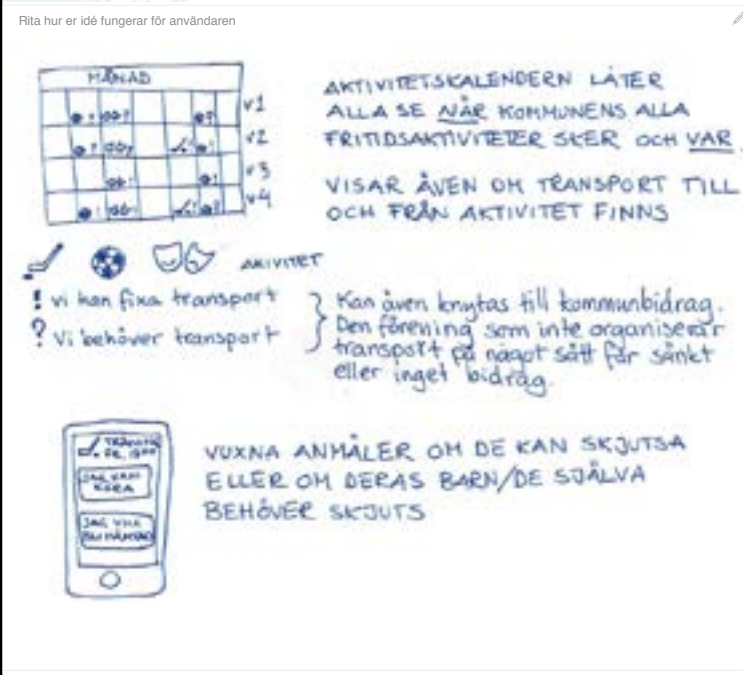 Rita hur er idé fungerar för användaren
MÅNAD
v1
v2
v3
v4
AKTIVITETSKALENDERN LÅTER
ALLA SE NÄR KOMMUNENS ALLA
FRITIDSAKTIVITETER SKER OCH VAR.
VISAR ÄVEN OM TRANSPORT TILL
OCH FRÅN AKTIVITET FINNS
AKIVITET
! vi kan fixa transport
? Vi behöver transport
Kan även knytas till kommunbidrag.
Den förening som inte organiserar
transport på något sätt får sänkt
eller inget bidrag.
JAG KAN
KÖRA
JAG VILL
VUXNA ANMÄLER OM DE KAN SKJUTSA
ELLER OM DERAS BARN/DE SJÄLVA
BEHÖVER SKJUTS